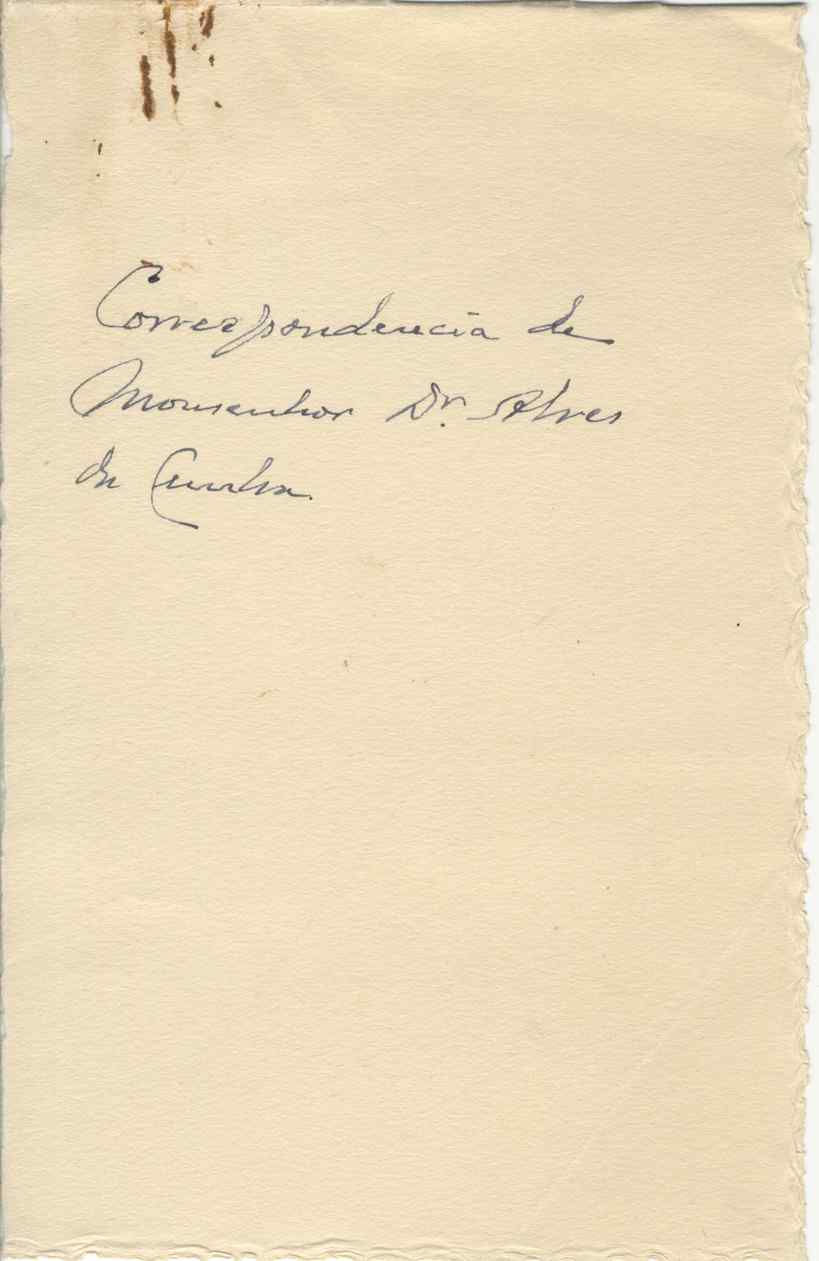 Correspondencia de
Monsenhor Dr. Alves
da Cunha